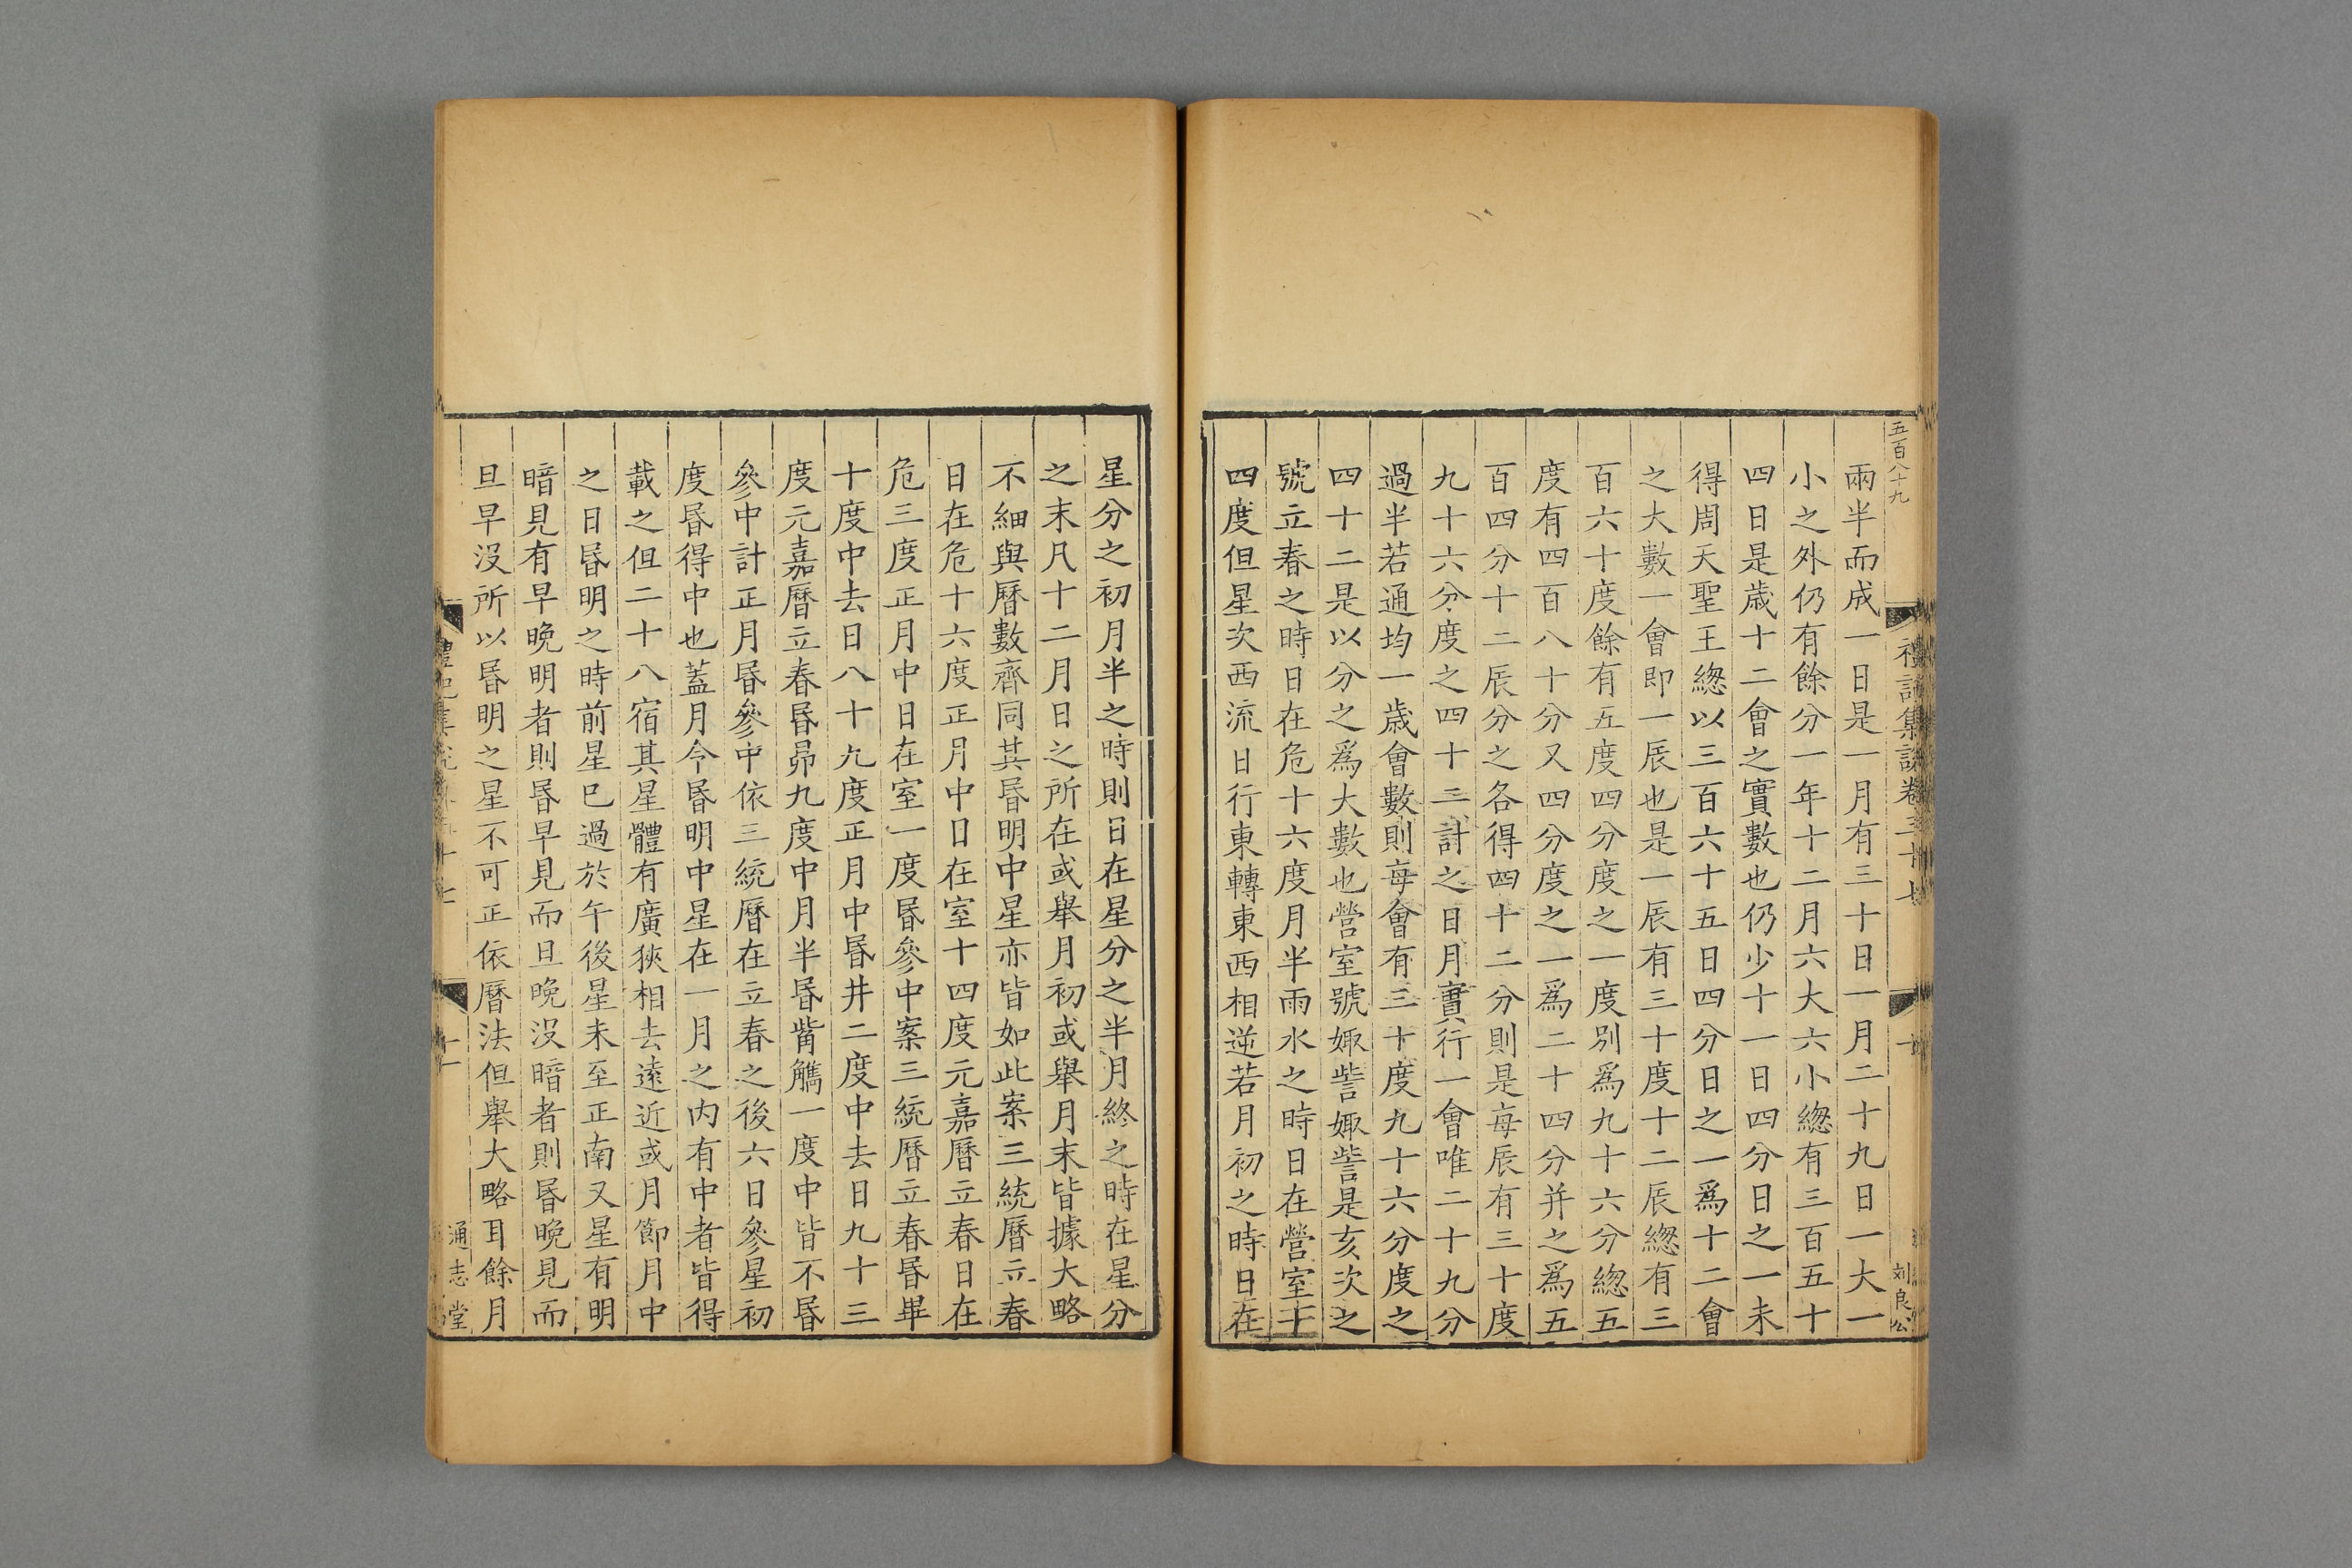 五百八十九
兩半而成一日是一月有三十日一月二十九日一大一
小之外仍有餘分一年十二月六大六小緫有三百五十
四日是歳十二會之實數也仍少十一日四分日之一未
得周天聖王緫以三百六十五日四分日之一爲十二會
之大數一會即一辰也是一辰有三十度十二辰緫有三
百六十度餘有五度四分度之一度别爲九十六分緫五
度有四百八十分又四分度之一爲二十四分并之爲五
百四分十二辰分之各得四十二分則是每辰有三十度
九十六分度之四十二計之日月實行一會唯二十九分
過半若通均一歳會數則每會有三十度九十六分度之
四十二是以分之爲大數也營室號娵訾娵訾是亥次之
號立春之時日在危十六度月半雨水之時日在營室十
四度但星次西流日行東轉東西相逆若月初之時日在
劉良公
星分之初月半之時則日在星分之半月終之時在星分
之末凡十二月日之所在或舉月初或舉月末皆據大略
不細與曆數齊同其昬明中星亦皆如此案三統曆立春
日在危十六度正月中日在室十四度元嘉曆立春日在
危三度正月中日在室一度昬參中案三統曆立春昬畢
十度中去日八十九度正月中昬井二度中去日九十三
度元嘉曆立春昬昴九度中月半昬觜觿一度中皆不昬
參中計正月昬參中依三統曆在立春之後六日參星初
度昬得中也蓋月令昬明中星在一月之内有中者皆得
載之但二十八宿其星體有廣狹相去遠近或月節月中
之日昬明之時前星已過於午後星未至正南又星有明
暗見有早晚明者則昬早見而旦晚没暗者則昬晚見而
旦早没所以昬明之星不可正依曆法但舉大略耳餘月
通志堂